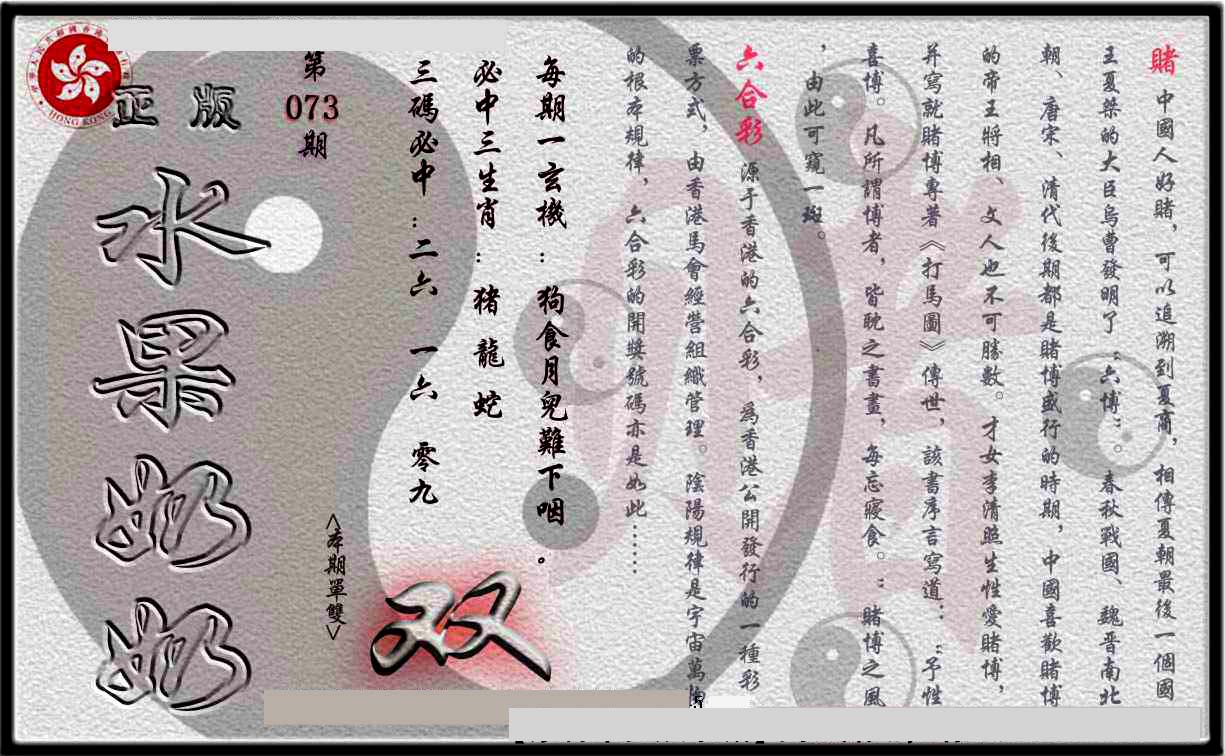 賭 中國人好賭，可以追溯到夏商，相傳夏朝最後一個國
王夏桀的大臣烏曹發明了“六博”。春秋戰國、魏晋南北
朝、唐宋、清代後期都是賭博盛行的時期，中國喜歡賭博
的帝王將相、文人也不可勝數。才女李清照生性愛賭博，
并寫就賭博專著《打馬圖》傳世，該書序言寫道：“予性
喜博。凡所謂博者，皆耽之書畫，每忘寢食。”賭博之風
，由此可窺一斑。
六合彩 源于香港的六合彩，為香港公開發行的一種彩
票方式，由香港馬會經營組織管理。陰陽規律是宇宙萬物
的根本規律，六合彩的開獎號碼亦是如此……
每期一玄機：狗食月兒難下咽。
必中三生肖：豬 龍 蛇
三碼必中：二六 一六 零九
<本期單雙>
双
第
073
期
正版
水果奶奶
HONG KONG